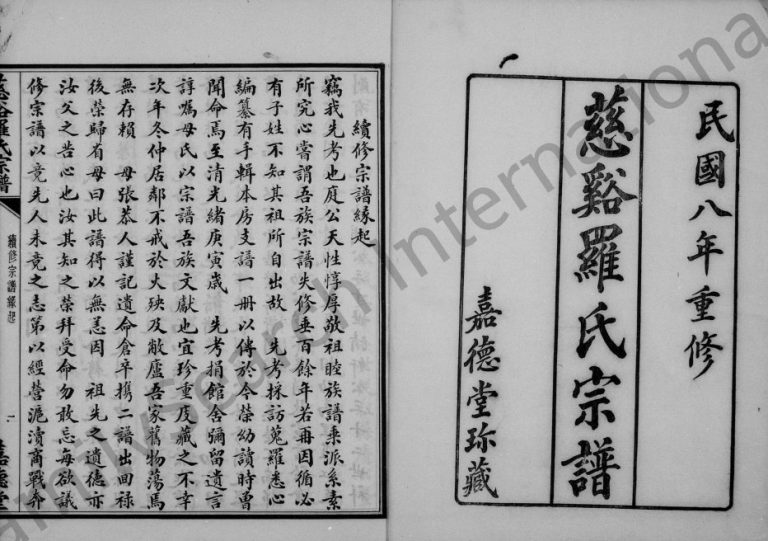 民國八年重修
慈谿羅氏宗譜
嘉德堂珍藏
續修宗譜緣起
竊我先考也庭公天性惇厚敬祖睦族譜乘派系素
所究心嘗謂吾族宗譜失修垂百餘年若再因循必
有子姓不知其祖所自出故 先考採訪蒐羅悉心
編纂有手輯本房支譜一冊以傳於今榮幼讀時曾
聞命焉至清光緒庚寅歲 先考捐館舍彌留遺言
諄囑母氏以宗譜吾族文獻也宜珍重庋藏之不幸
次年冬仲居鄰不戒於火殃及敝廬吾家舊物蕩焉
無存賴 母張恭人謹記遺命倉卒攜二譜出回祿
後榮歸省母曰此譜得以無恙因 祖先之遺德亦
汝父之苦心也汝其知之榮拜受命勿敢忘每欲議
修宗譜以竟先人未竟之志第以經營滬瀆商戰奔
慈谿羅氏宗譜
續修宗譜緣起
一
嘉德堂
FamilySearch International